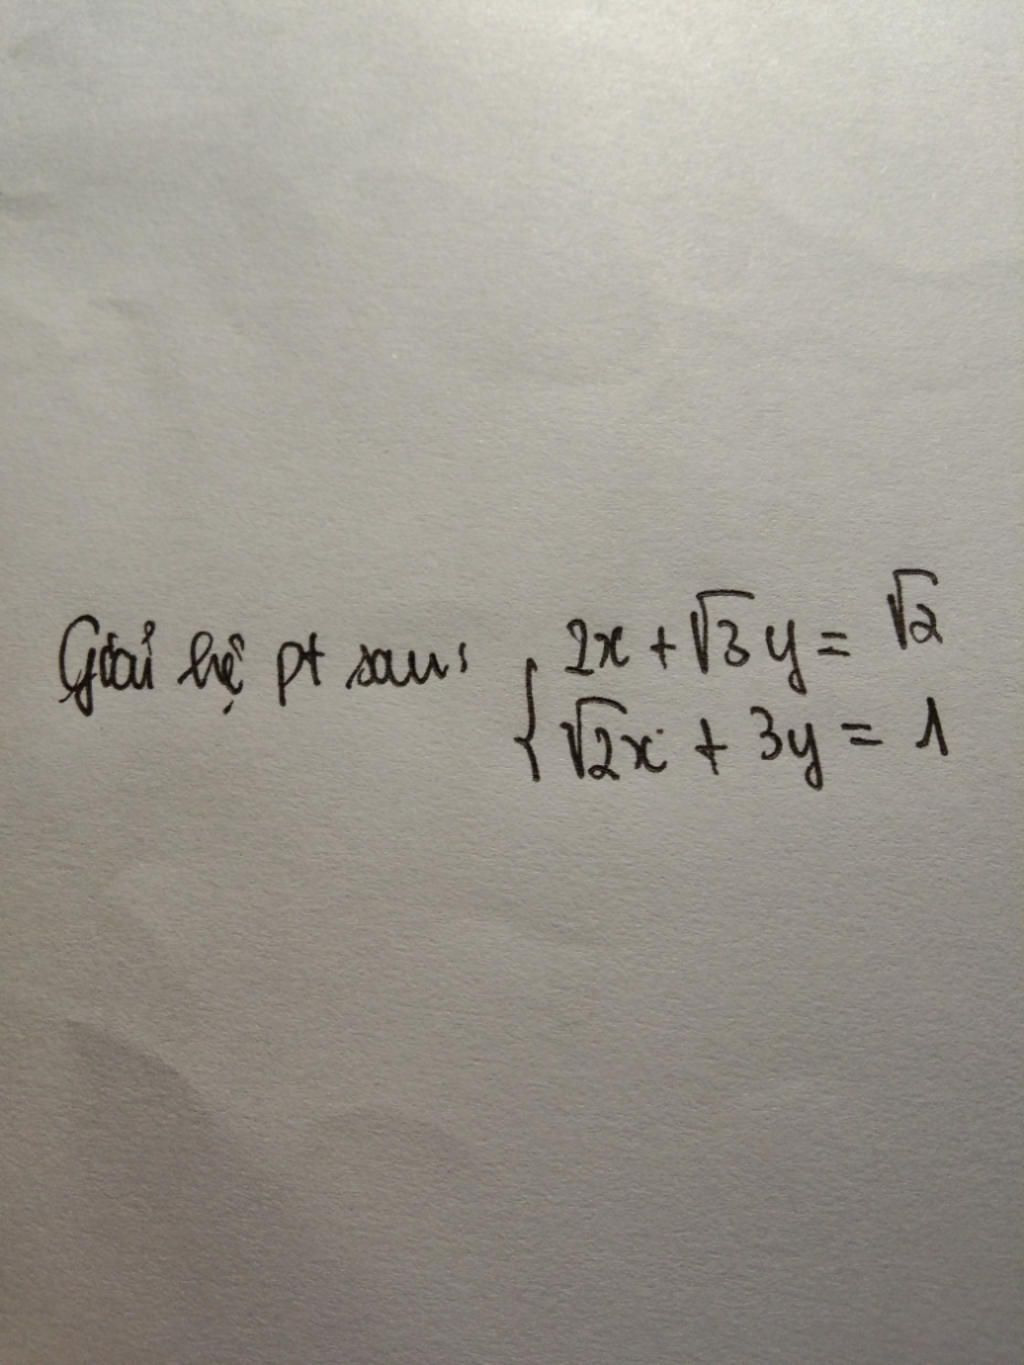 Giải hệ pt sau: { 2x + √3y = √2
√2x + 3y = 1